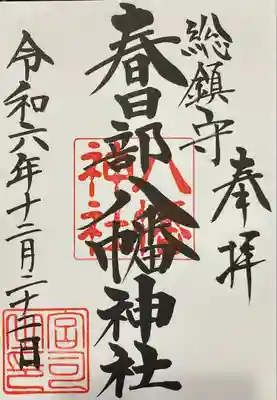 奉拝
総鎮守
春日部八幡神社
八幡神社
令和六年十二月二十二日